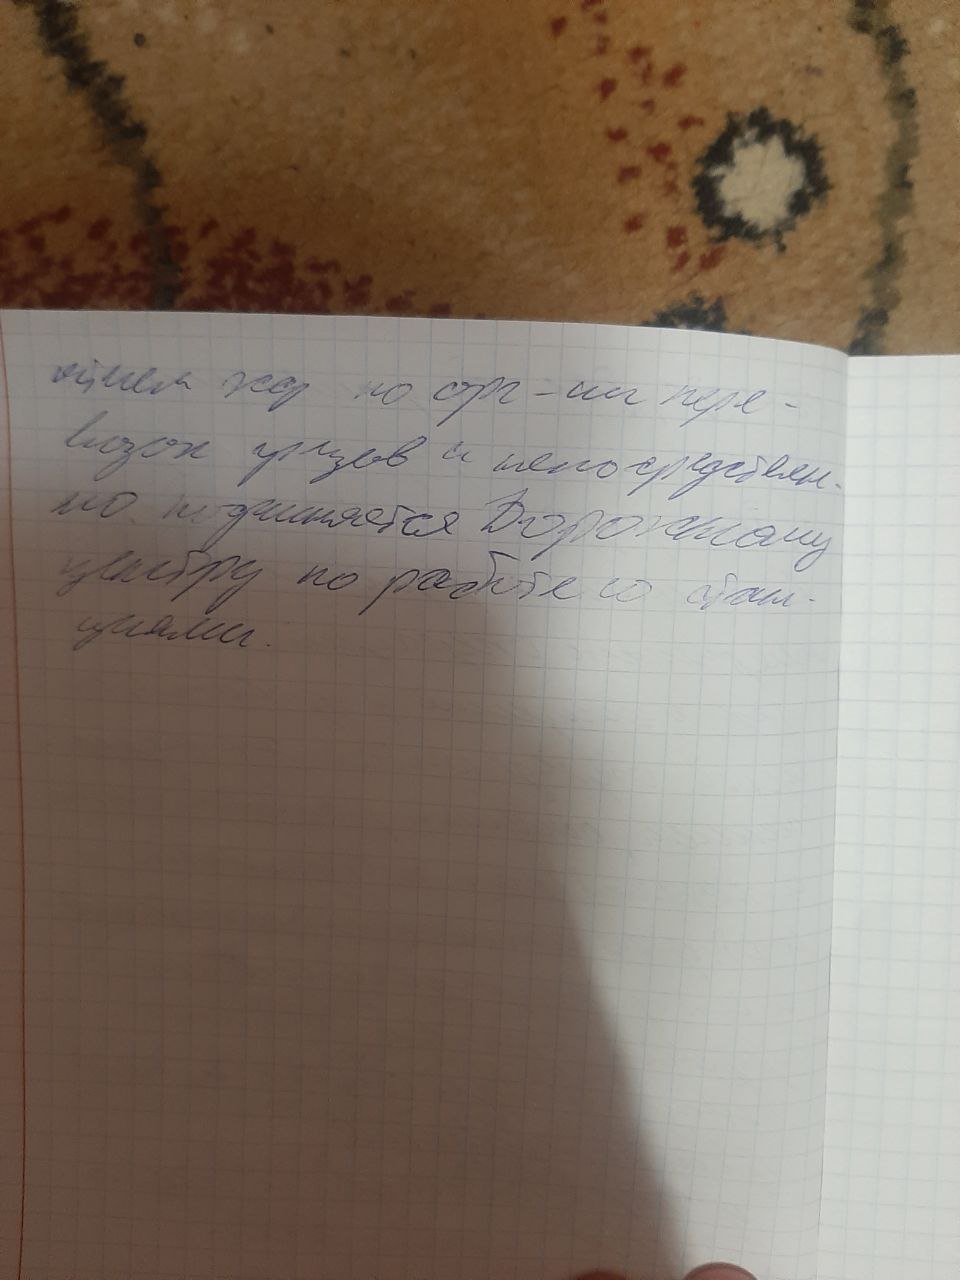 жд по орг-ии пере-
возок грузов и непосредствен-
но подчиняется Дорожному
центру по работе со стан-
циями.